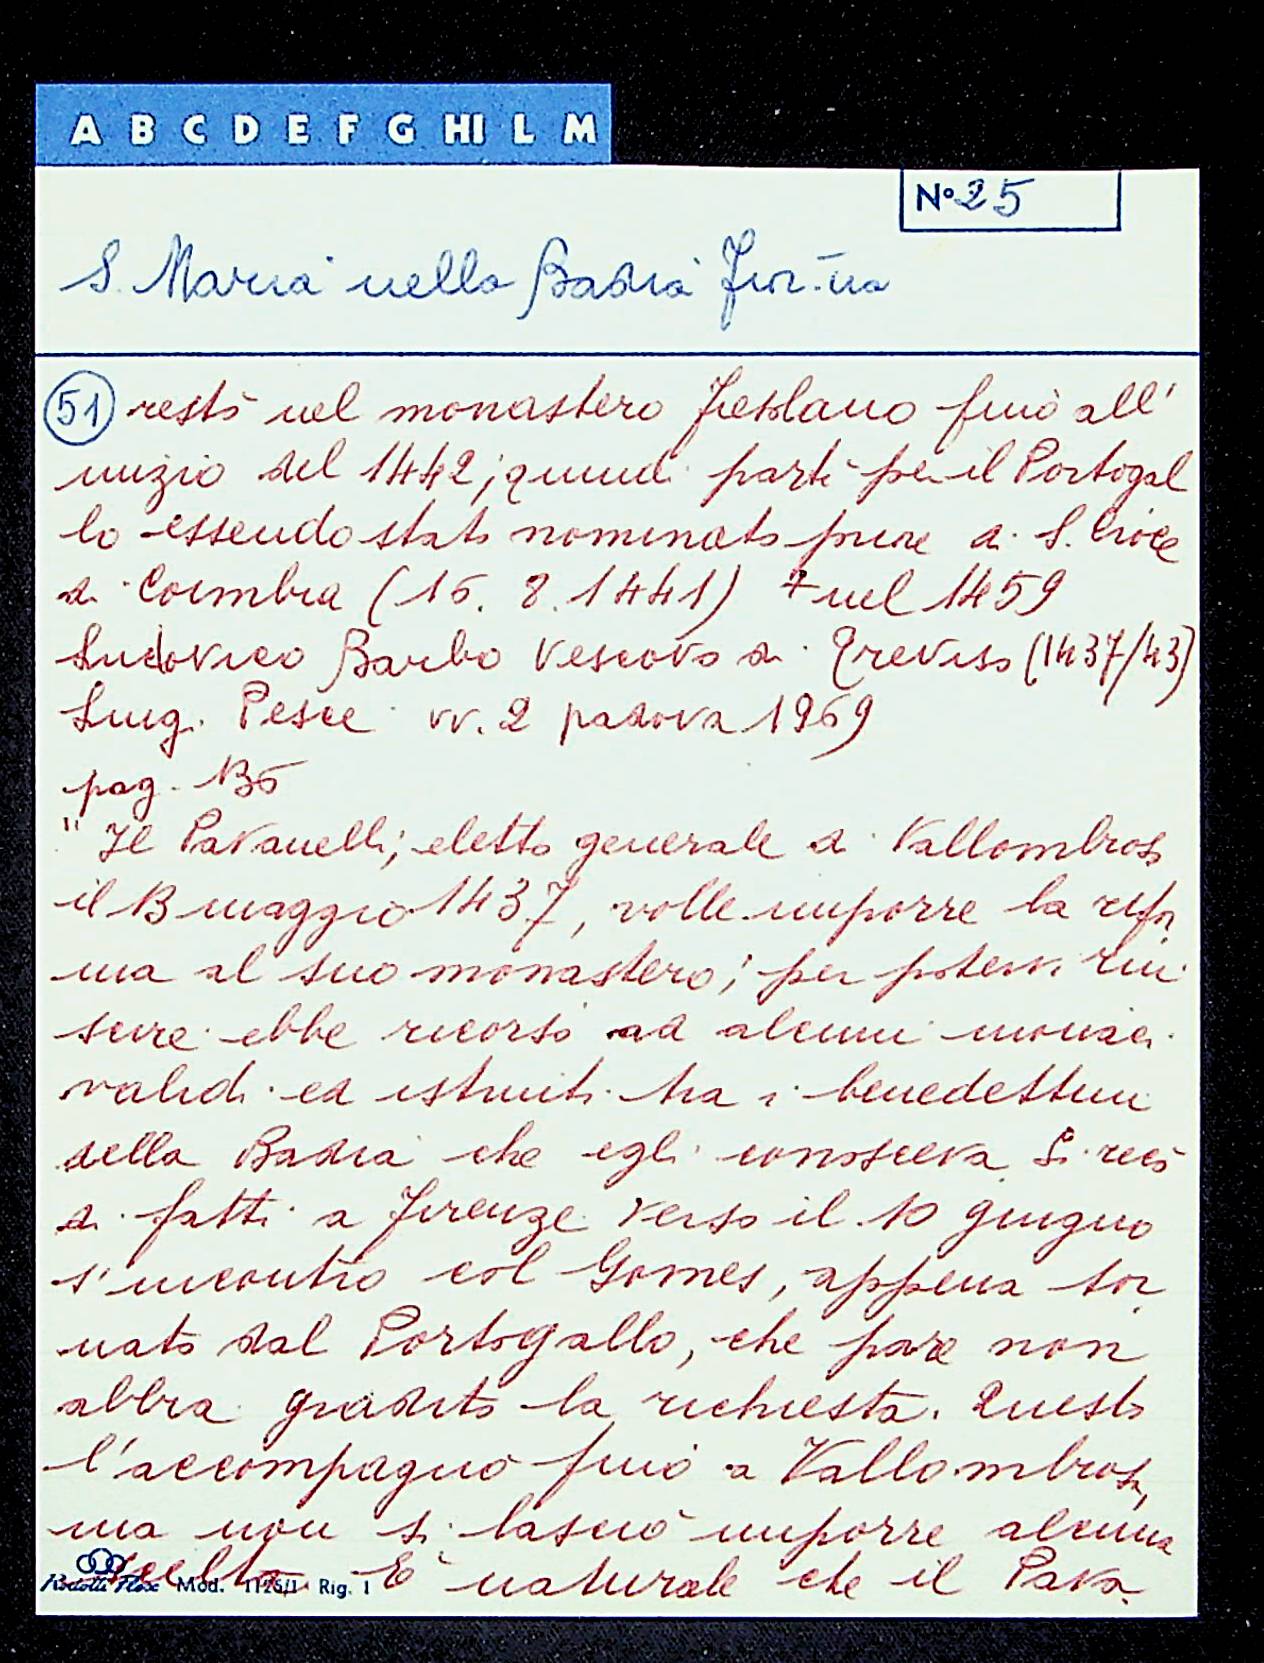 A B C D E F G HI L M
N° 25
S. Maria nella Badia Fior.na
51 restò nel monastero Fiesolano fino all'
inizio del 1442; quindi partì per il Portogal
lo essendo stato nominato priore di S. Croce
di Coimbra (15. 8. 1441) + nel 1459
Ludovico Barbo Vescovo di Treviso (1437/43)
Luig. Pesce vv. 2 padova 1969
pag. 135
" Il Pavanelli; eletto generale di Vallombrosa
il 13 maggio 1437, volle imporre la rifor
ma al suo monastero; per potervi riu
scire ebbe ricorso ad alcuni monaci
validi ed istruiti tra i benedettini
della Badia che egli conosceva Si recò
di fatti a Firenze verso il 10 giugno
s'incontrò col Gomes, appena tor
nato dal Portogallo, che pare non
abbia gradito la richiesta. Questo
l'accompagnò fino a Vallombrosa,
ma non si lasciò imporre alcuna
scelta. E' naturale che il Pava
Mod. 1126/1 Rig. 1